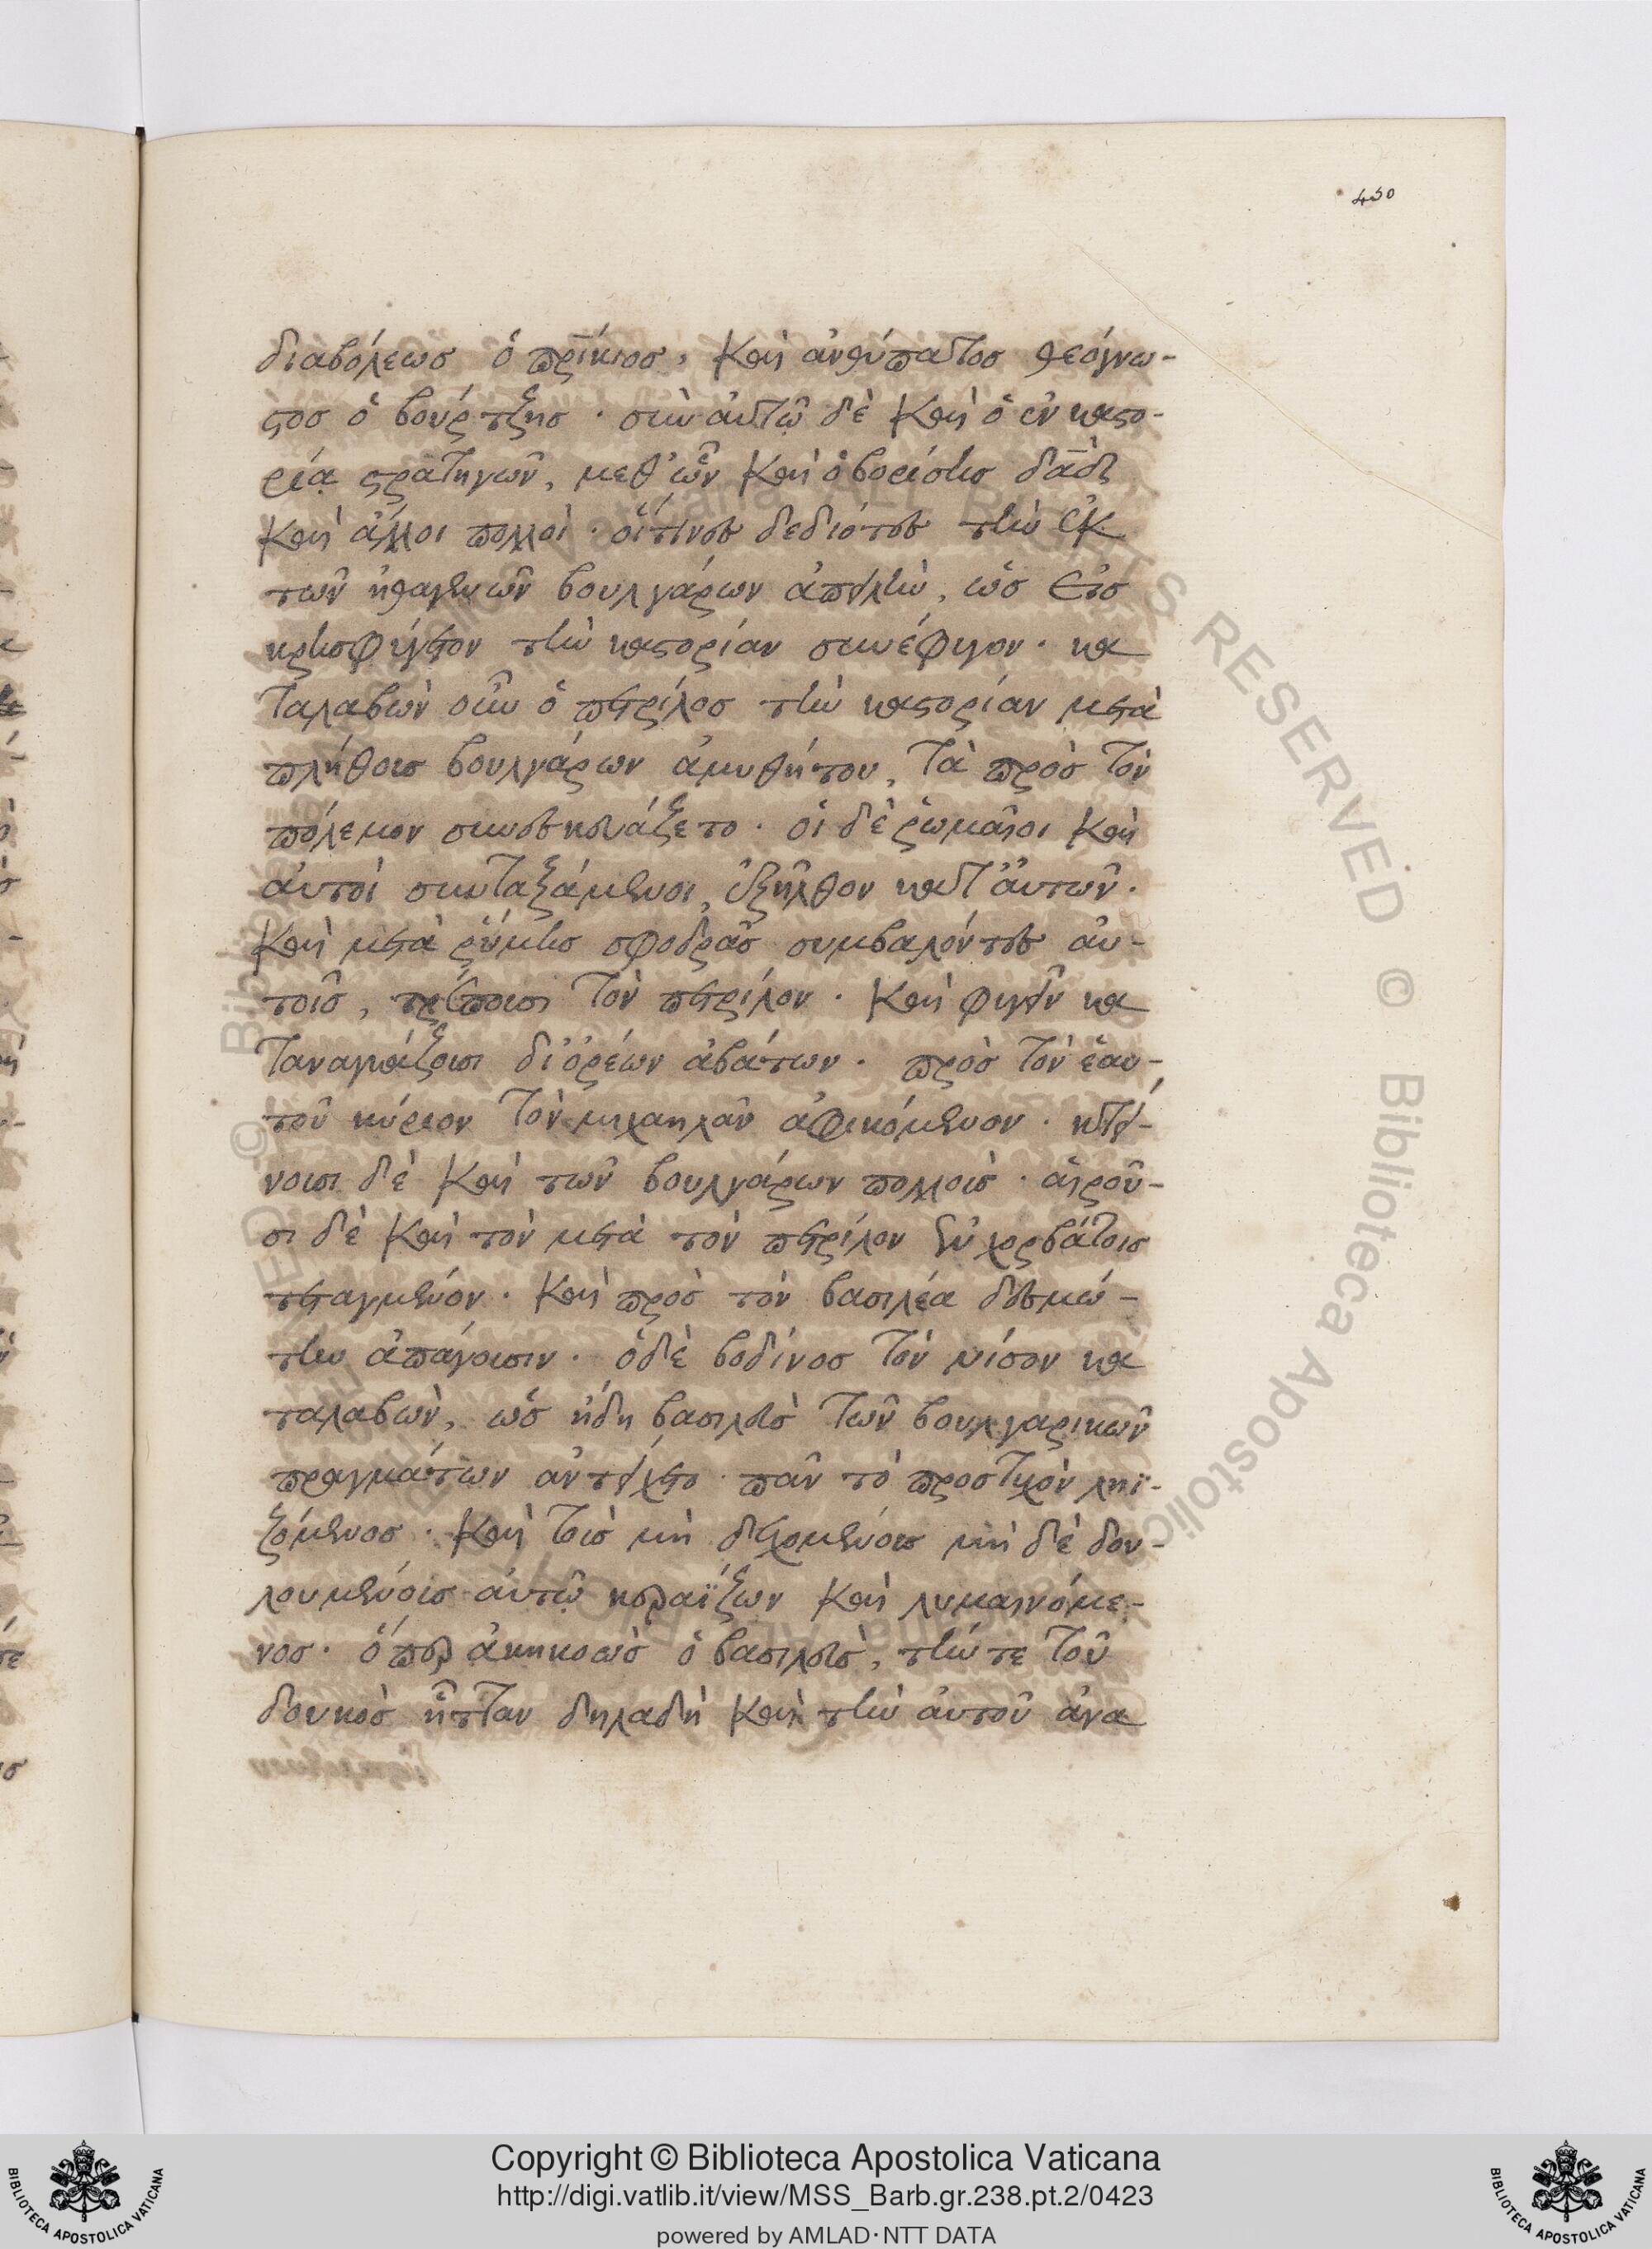 450
διαβόλεως ὁ πρίκιος, καὶ ἀνθύπατος θεόγνω-
στος ὁ βούρτζης · σὺν αὐτῷ δὲ καὶ ὁ ἐν καστο-
ρίᾳ στρατηγῶν, μεθ' ὧν καὶ ὁ βορίσης δᾱδ
καὶ ἄλλοι πολλοὶ · οἵτινες δεδιότες τὴν ἐκ
τῶν ἠθαγενῶν βουλγάρων ἀπειλὴν, ὡς εἰς
κρησφύγετον τὴν καστορίαν συνέφυγον · κα
ταλαβὼν οὖν ὁ πετρίλος τὴν καστορίαν μετὰ
πλήθους βουλγάρων ἀμυθήτου, τὰ πρὸς τὸν
πόλεμον συνεσκευάζετο · οἱ δὲ ῥωμαῖοι καὶ
αὐτοὶ συνταξάμενοι, ἐξῆλθον κατ' αὐτῶν.
καὶ μετὰ ῥύμης σφοδρᾶς συμβαλόντες αὐ-
τοῖς, τρέπουσι τὸν πετρίλον · καὶ φυγεῖν κα
ταναγκάζουσι δι' ὀρέων ἀβάτων · πρὸς τὸν ἑαυ-
τοῦ κύριον τὸν μιχαηλᾶν ἀφικόμενον · κτεί-
νουσι δὲ καὶ τῶν βουλγάρων πολλοὺς · αἱροῦ-
σι δὲ καὶ τὸν μετὰ τὸν πετρίλον ἐν χορβάτοις
τεταγμένον · καὶ πρὸς τὸν βασιλέα δεσμώ-
την ἀπάγουσιν · ὁ δὲ βοδίνος τὸν νίσον κα
ταλαβὼν, ὡς ἤδη βασιλεὺς τῶν βουλγαρικῶν
πραγμάτων ἀντείχετο · πᾶν τὸ προστυχὸν ληϊ-
ζόμενος · καὶ τοὺς μὴ δεχομένους μὴ δὲ δου-
λουμένους αὐτῷ κεραΐζων καὶ λυμαινόμε-
νος · ὅπερ ἀκηκοὼς ὁ βασιλεὺς, τήν τε τοῦ
δουκὸς ἧτταν δηλαδὴ καὶ τὴν αὐτοῦ ἀνα
Copyright © Biblioteca Apostolica Vaticana
http://digi.vatlib.it/view/MSS_Barb.gr.238.pt.2/0423
powered by AMLAD·NTT DATA
BIBLIOTECA APOSTOLICA VATICANA
BIBLIOTECA APOSTOLICA VATICANA